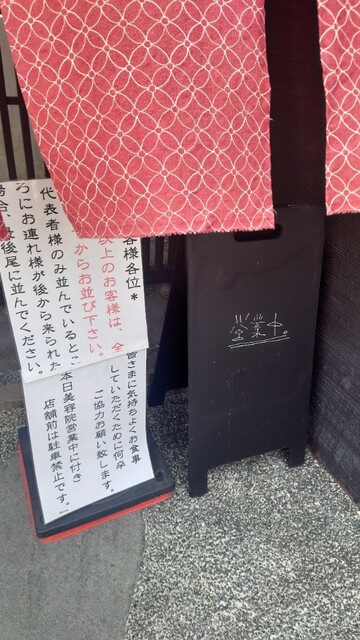 客様各位*
以上のお客様は、全
からお並び下さい。
代表者様のみ並んでいるところ
ろにお連れ様が後から来られた
後尾に並んでください。
皆さまに気持ちよくお食事
していただくために何卒
ご協力お願い致します。
本日美容院営業中に付き
店舗前は駐車禁止です。
営業中。